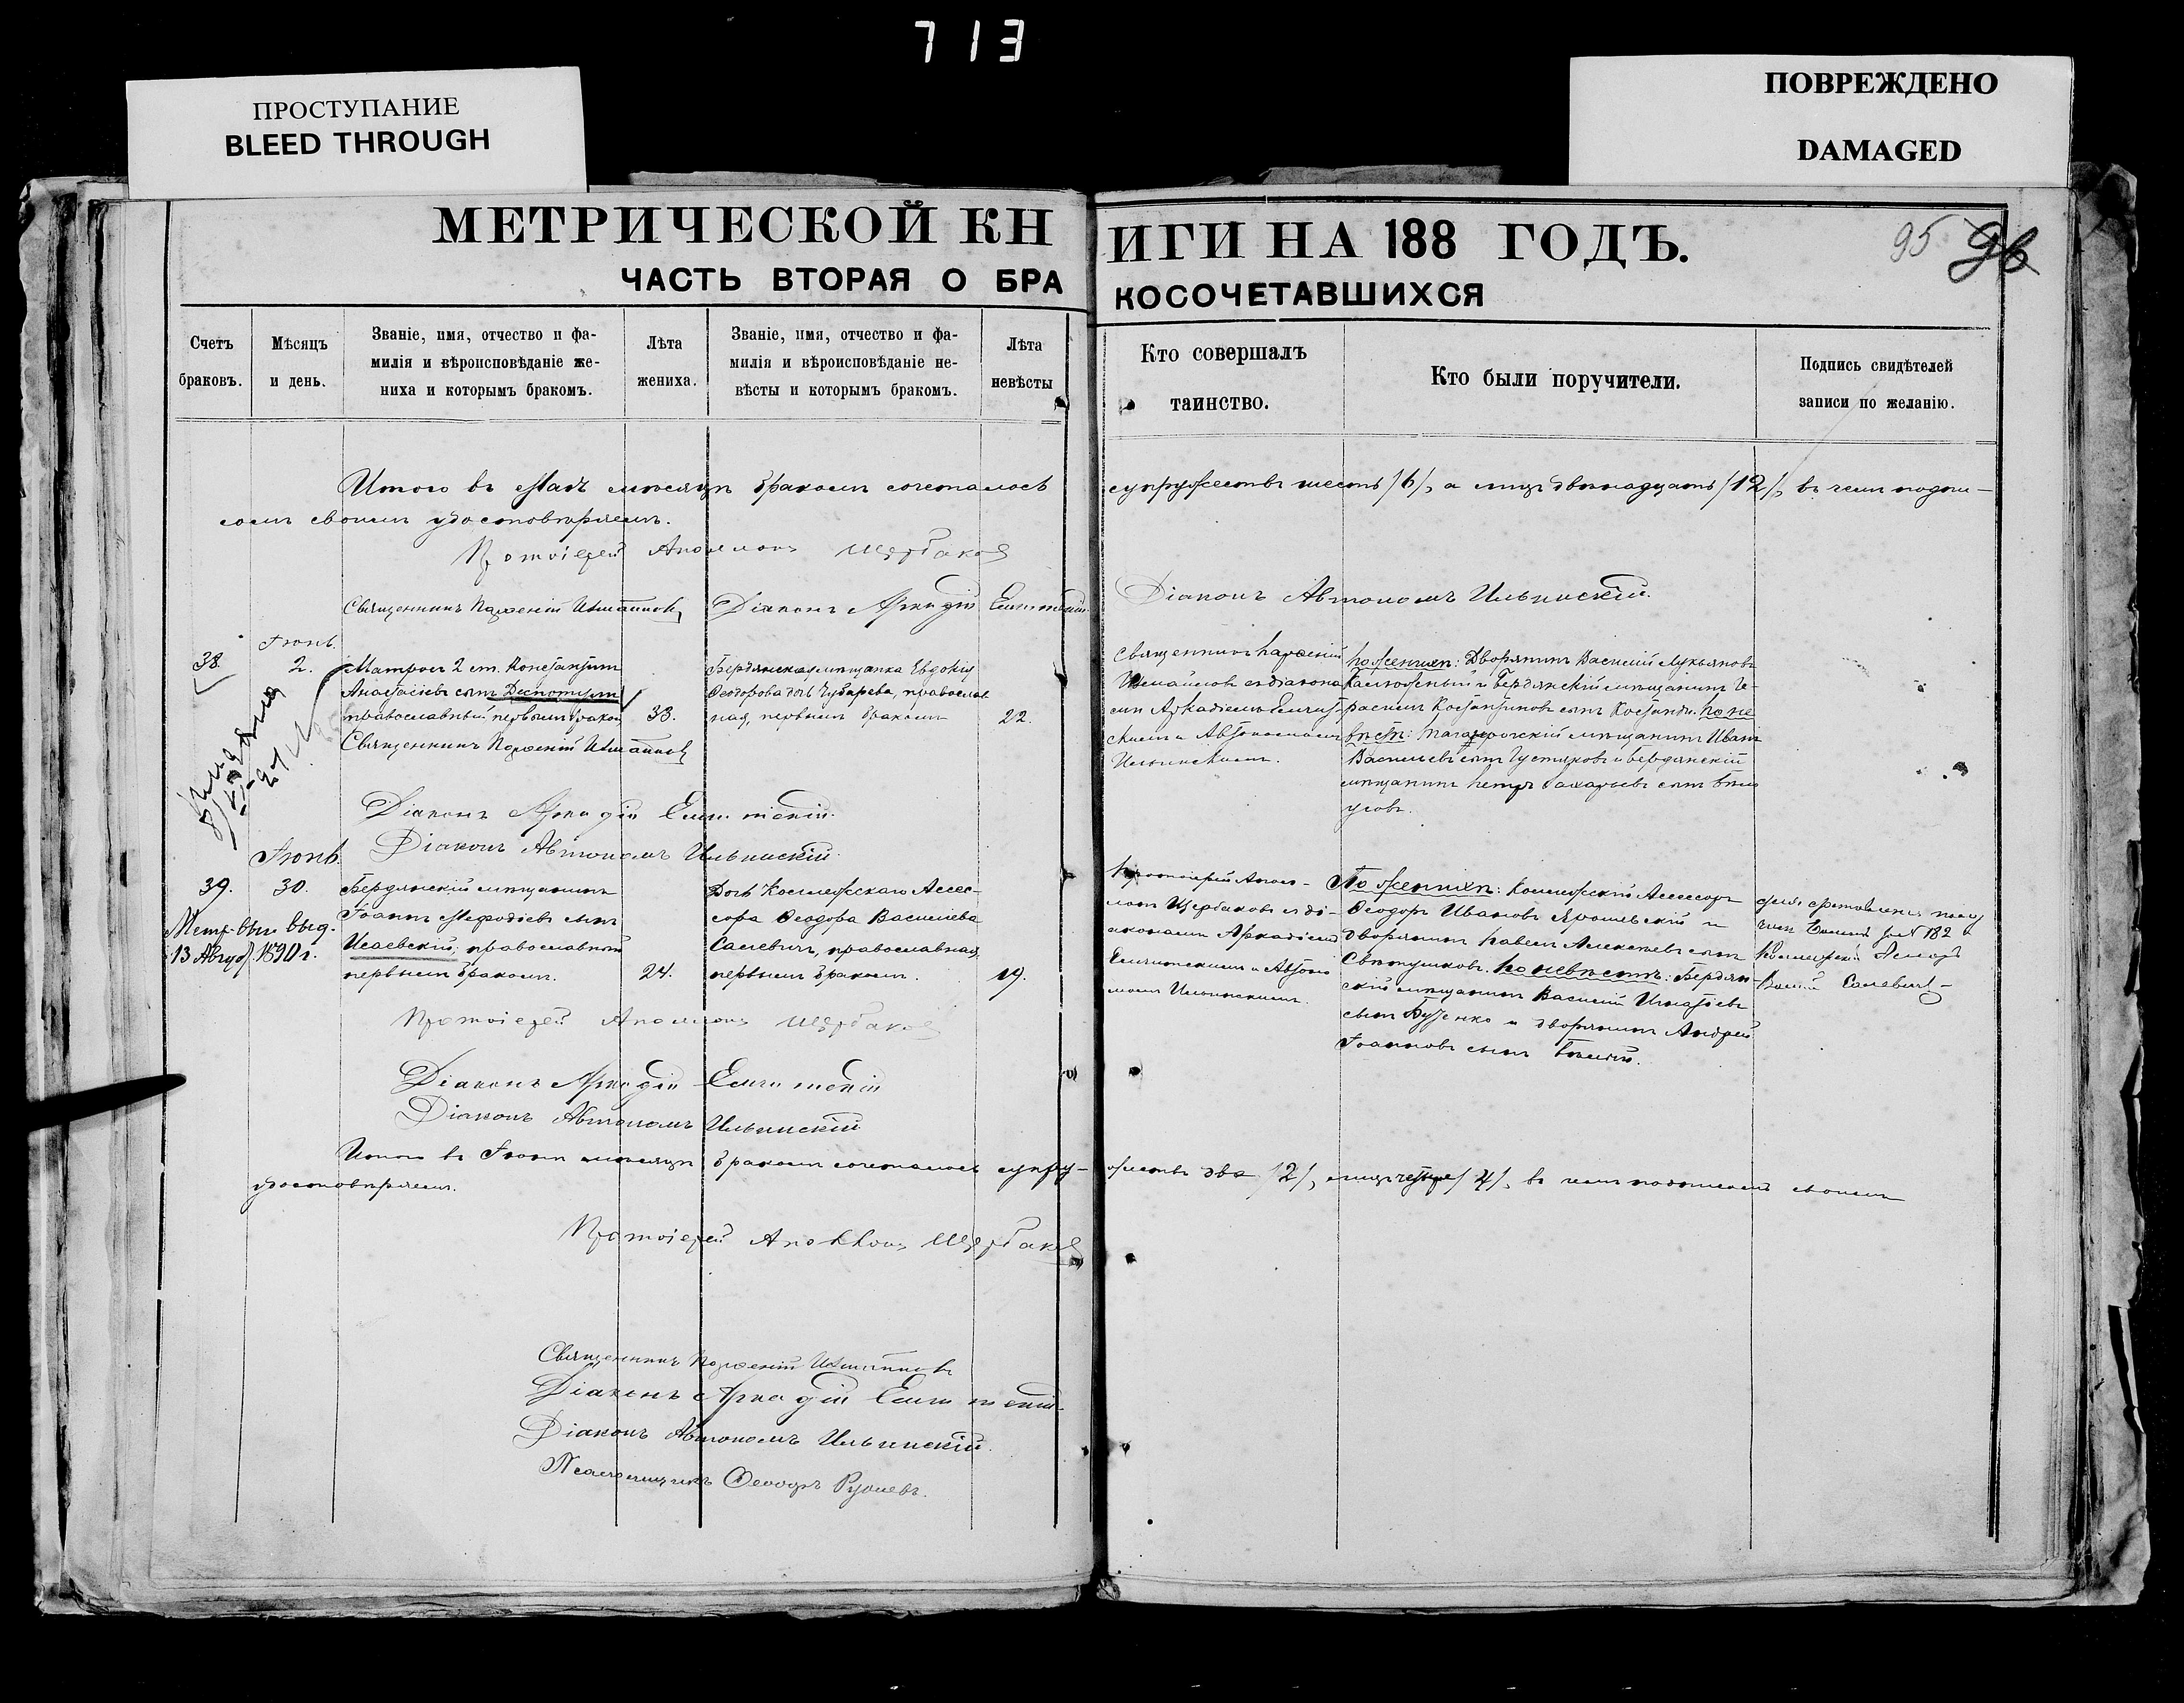 713
ПРОСТУПАНИЕ
BLEED THROUGH
ПОВРЕЖДЕНО
DAMAGED
МЕТРИЧЕСКОЙ КН
ИГИ НА 188 ГОДЪ.
95 96
ЧАСТЬ ВТОРАЯ О БРА
КОСОЧЕТАВШИХСЯ
Счетъ
браковъ.
Мѣсяцъ
и день.
Званіе, имя, отчество и фа-
милія и вѣроисповѣданіе же-
ниха и которымъ бракомъ.
Лѣта
жениха.
Званіе, имя, отчество и фа-
милія и вѣроисповѣданіе не-
вѣсты и которымъ бракомъ.
Лѣта
невѣсты
Кто совершалъ
таинство.
Кто были поручители.
Подпись свидѣтелей
записи по желанію.
Итого въ Маѣ мѣсяцѣ бракомъ сочеталось
супружествъ шесть /6/, а лицъ двѣнадцать /12/, въ чемъ подпи-
сомъ своимъ удостовѣряемъ.
Протоіерей Аполлонъ Щербаковъ
Священникъ Парѳеній Измайловъ
Діаконъ Аркадій
Діаконъ Автономъ Ильинскій.
38.
Іюнь.
2.
Матросъ 2 ст. Константинъ
Анастасіевъ сынъ Деспотули
православный первымъ браком
33.
Бердянская мѣщанка Евдокия
Ѳеодорова дочь Чубарева, православ
ная, первымъ бракомъ
22.
Священникъ Парѳеній
Измайловъ съ діакона
ми Аркадіемъ
скимъ и Автономомъ
Ильинскимъ.
По женихѣ: Дворянинъ Василій Лукьяновъ
и Бердянскій мѣщанинъ Ге-
расимъ Константиновъ сынъ По не
вѣстѣ: Таганрогскій мѣщанинъ Иванъ
Васильевъ сынъ и Бердянскій
мѣщанинъ Петръ Захарьевъ сынъ Бѣло
усовъ.
Священникъ Парѳеній Измайловъ
Діаконъ Аркадій
Діаконъ Автономъ Ильинскій.
Іюнь.
39.
30.
Метр. выд.
13 Август. 1890 г.
Бердянскій мѣщанинъ
Іоаннъ Меѳодіевъ сынъ
Исаевскій, православный
первымъ бракомъ.
24.
Дочь Коллежскаго Ассес-
сора Ѳеодора Васильева
Салевичъ, православная,
первымъ бракомъ.
19.
Протоіерей Апол-
лонъ Щербаковъ съ ді-
аконами Аркадіемъ
и Автоно
момъ Ильинскимъ.
По женихѣ: Коллежскій Ассесоръ
Ѳеодоръ Ивановъ и
дворянинъ Павелъ Алексѣевъ сынъ
Свѣтушковъ. По невѣстѣ: Бердян-
скій мѣщанинъ Василій Игнатіевъ
сынъ Буженко и дворянинъ Андрей
Іоанновъ сынъ
№ 182
Протоіерей Аполлонъ Щербаковъ
Діаконъ Аркадій
Діаконъ Автономъ Ильинскій
Итого въ Іюнѣ мѣсяцѣ бракомъ сочеталось супру-
жествъ два /2/, а лицъ четыре /4/, въ чемъ подписомъ своимъ
удостовѣряемъ.
Протоіерей Аполлонъ Щербаковъ
Священникъ Парѳеній Измайловъ
Діаконъ Аркадій
Діаконъ Автономъ Ильинскій.
Псаломщикъ Ѳеодоръ